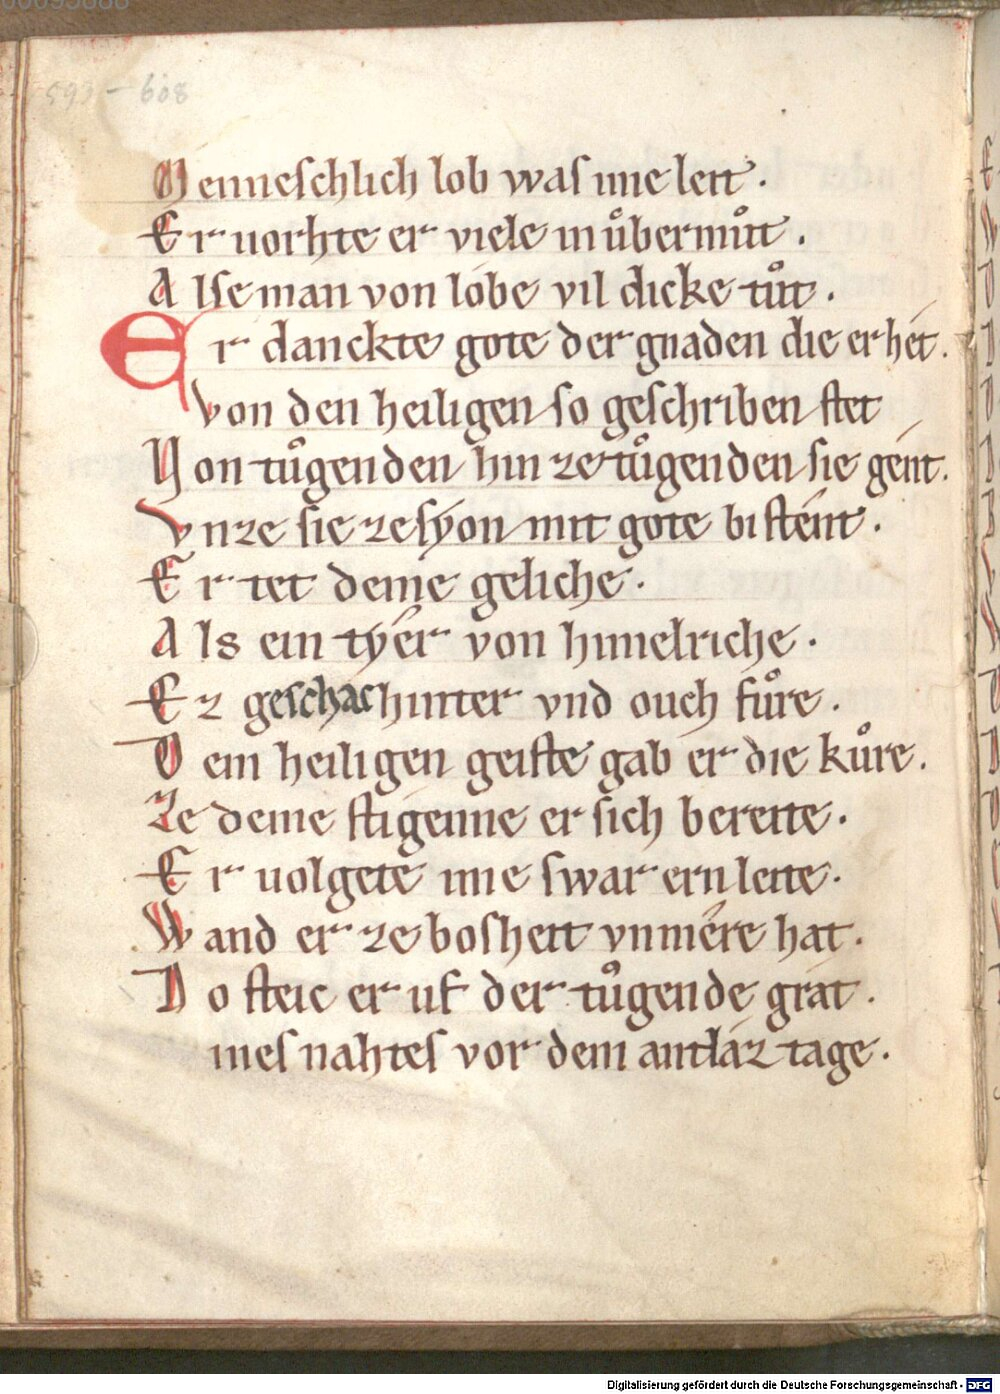 593 - 608
Menneschlich lob was ime leit.
Er uorhte er viele in uͦbermuͦt.
Alse man von lobe vil dicke tuͦt.
Er danckte gote der gnaden die er hét.
Von den heiligen so geschriben stet
Von tuͦgenden hin ze tuͦgenden sie gént.
Vnze sie ze sẏon mit gote bistént.
Er tet deme geliche.
Als ein tẏér von himelriche.
Ez geschach hinter vnd ouch fuͦre.
Dem heiligen geiste gab er die kuͦre.
Ze deme stigenne er sich bereite.
Er uolgete ime swar ern leite.
Wand er ze bosheit vnmére hat.
Do steic er uf der tuͦgende grát.
ines nahtes vor dem antláz tage.
Digitalisierung gefördert durch die Deutsche Forschungsgemeinschaft - DFG